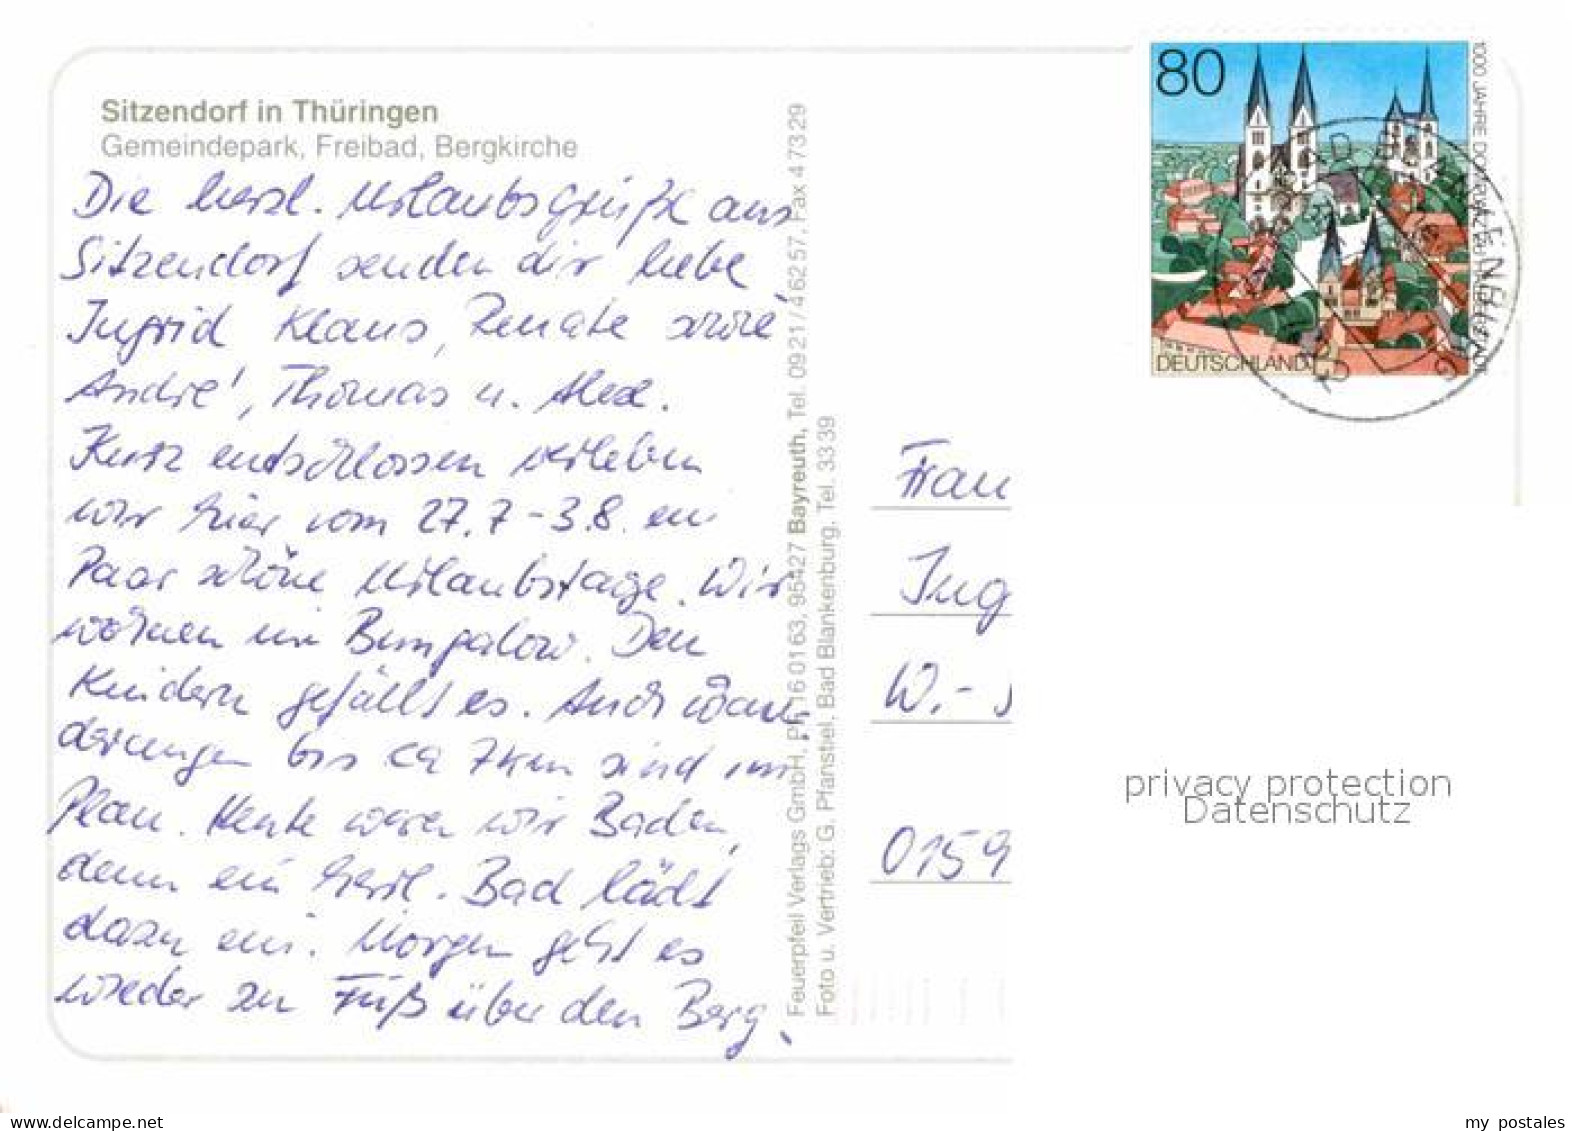 Sitzendorf in Thüringen
Gemeindepark, Freibad, Bergkirche
Die herzl. Urlaubsgrüße aus
Sitzendorf senden dir liebe
Ingrid Klaus, Renate sowie
André, Thomas u. Alex.
Kurz entschlossen verleben
wir hier vom 27.7-3.8. ein
Paar schöne Urlaubstage. Wir
wohnen im Bungalow. Den
Kindern gefällt es. Auch Wan-
derungen bis ca 7km sind im
Plan. Heute waren wir Baden,
denn ein herrl. Bad lädt
dazu ein. Morgen geht es
wieder zu Fuß über den Berg.
Feuerpfeil Verlags GmbH, Pf. 16 01 63, 95427 Bayreuth, Tel. 0921/4 62 57, Fax 4 73 29
Foto u. Vertrieb: G. Pfanstiel, Bad Blankenburg, Tel. 33 39
80
1000 JAHRE DOM
DEUTSCHLAND
Frau
Ing
W.-
0159
privacy protection
Datenschutz
my postales